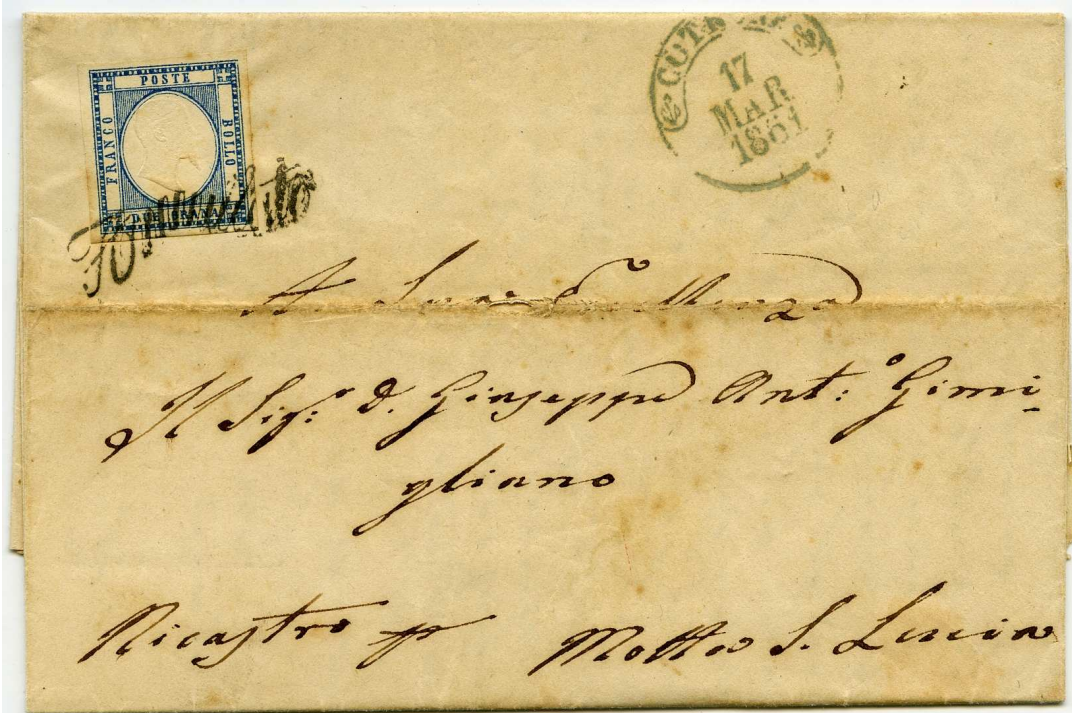 POSTE
FRANCO
BOLLO
DUE GRANA
Annullato
17
MAR
1861
A Sua Eccellenza
Il Sig.r D. Giuseppe Ant:o Gimi-
gliano
Nicastro p Motta S. Lucia